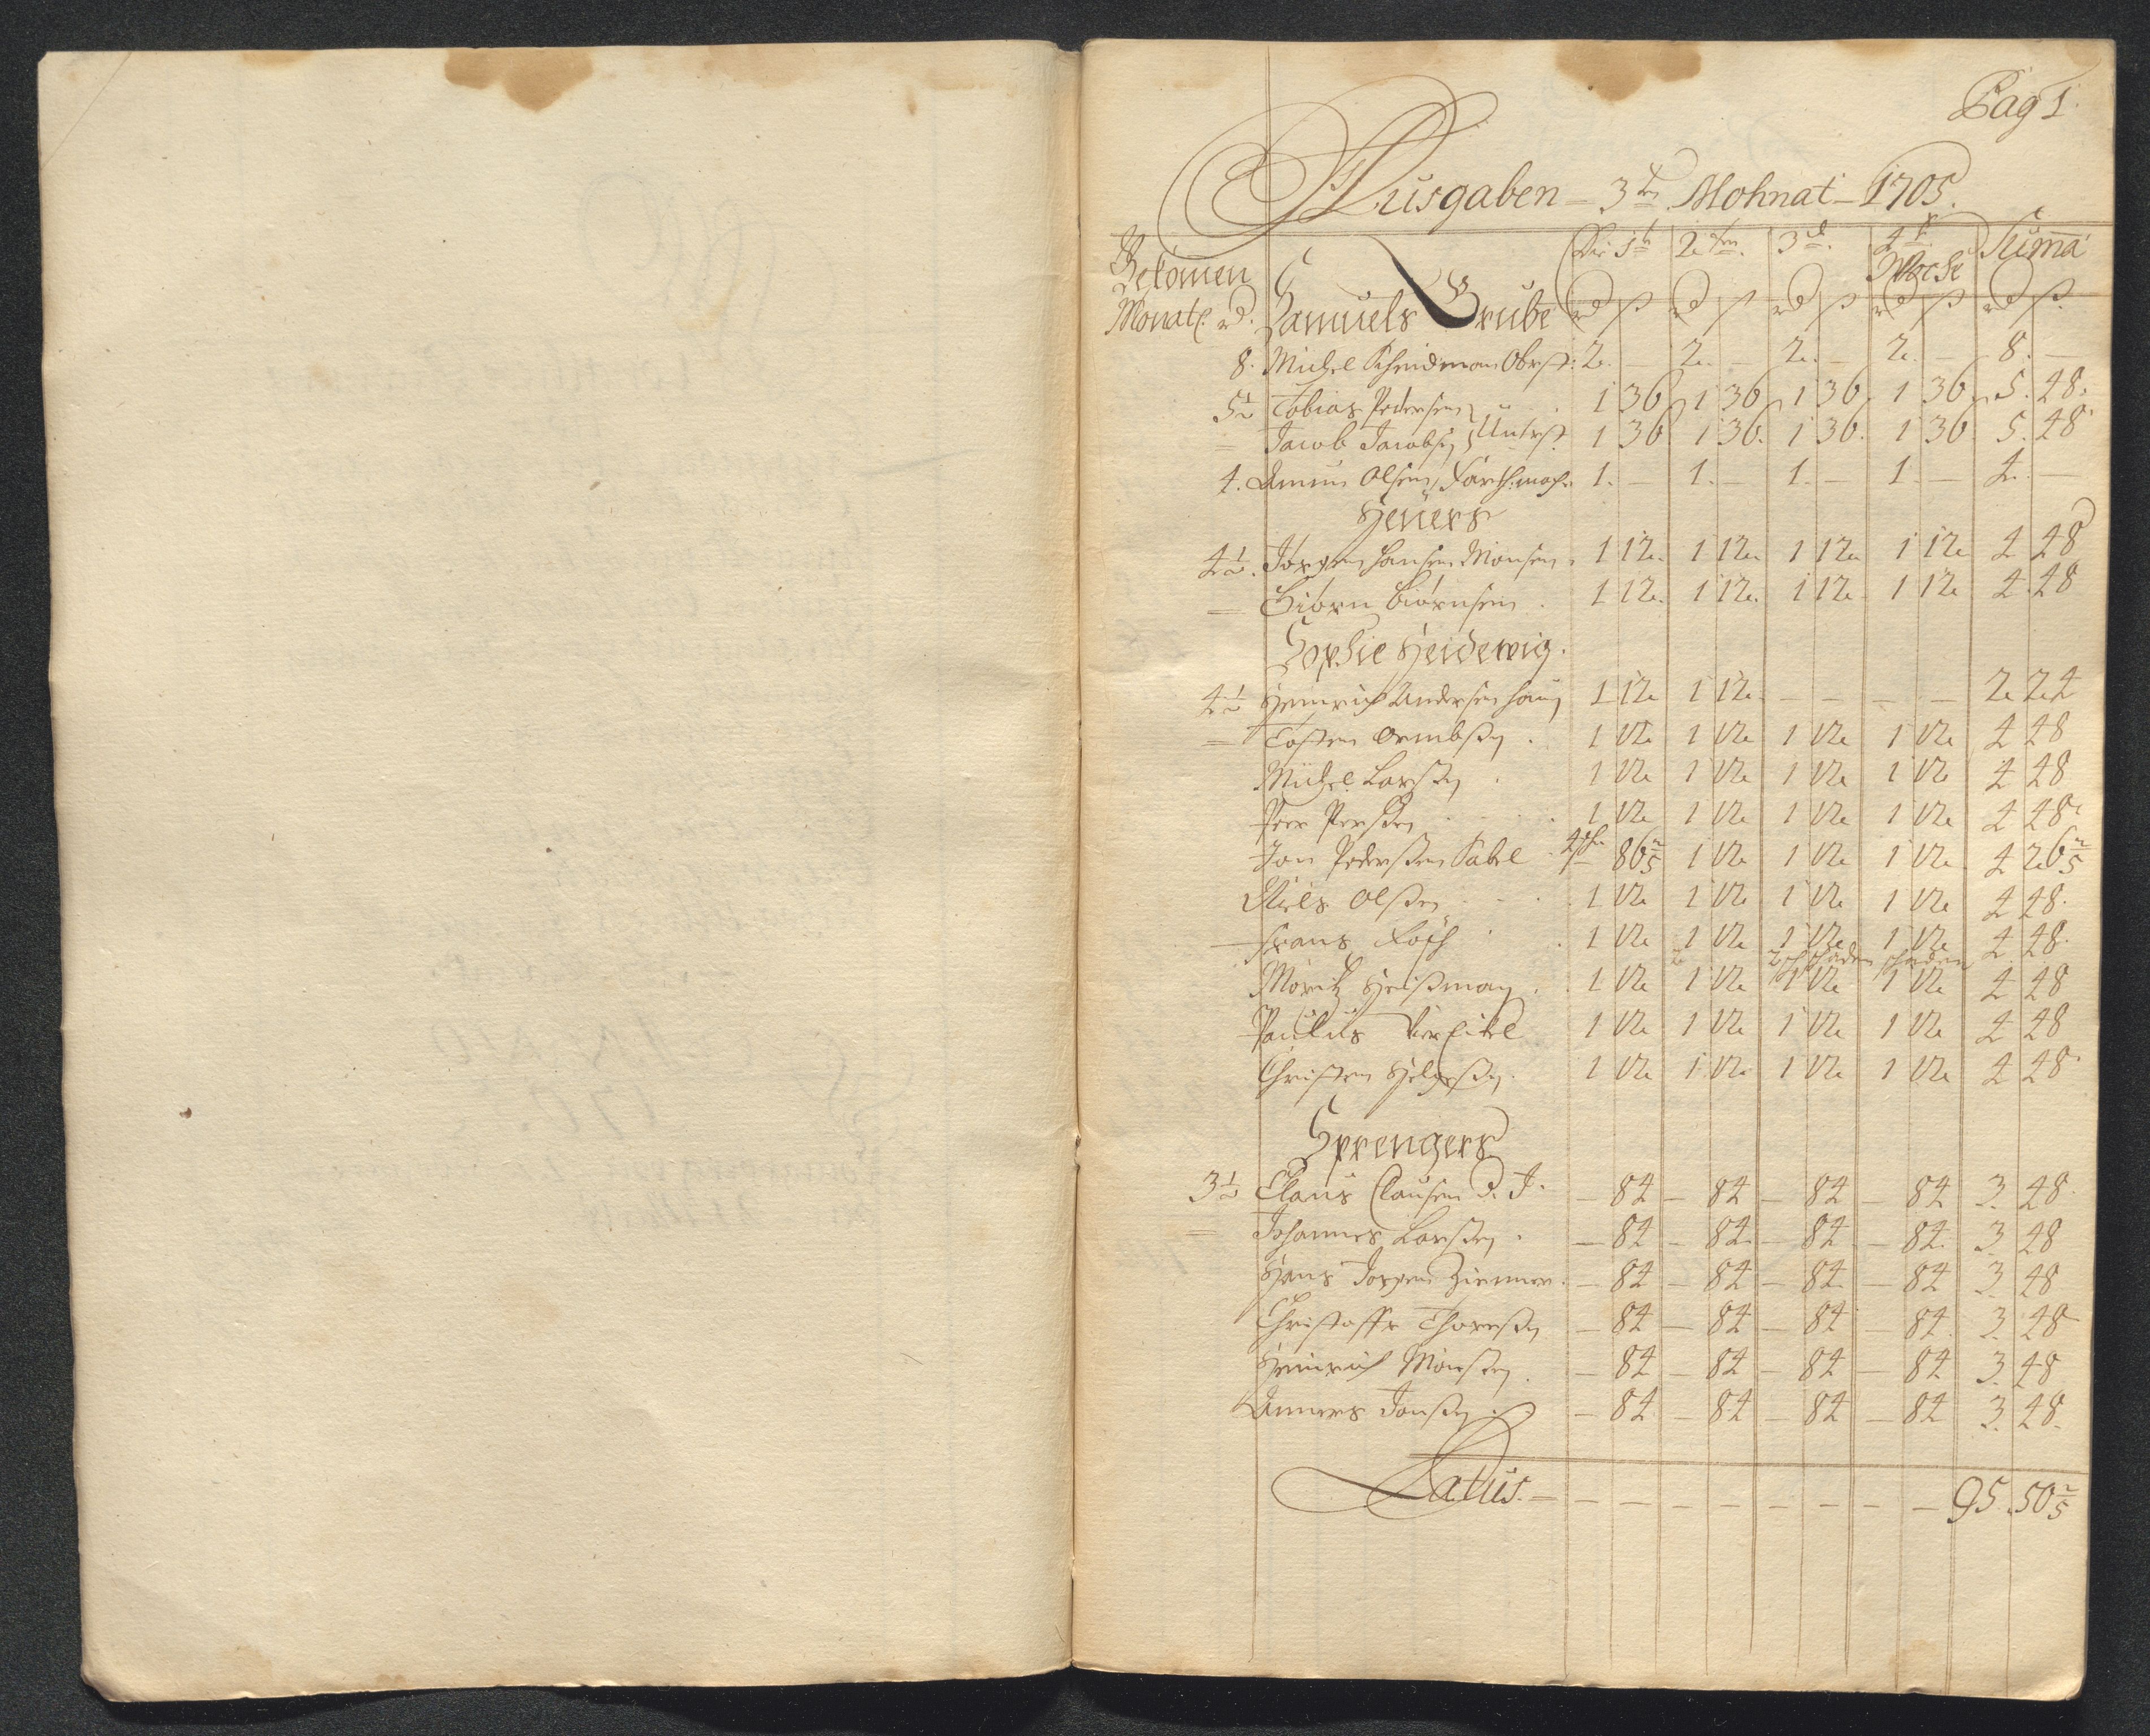 Pag 1.
Ausgaben – 3te Mohnat – 1705.
Bekomen Die 1te 2ten 3d. 4te Woche Suma
Monatl. rd. Samuels Grube rd ß rd ß rd ß rd ß rd ß
8. Michel Schmidman Obrst: 2. – 2. – 2. – 2. – 8. –
5½ Tobias Pedersen 1 36 1 36 1 36 1 36 5. 48.
= Jacob Jacobsen Untrst 1 36 1 36. 1 36. 1 36 5. 48
4. Amun Olsen 1. – 1. – 1. – 1. – 4. –
Heüers
4½. Jörgen Hansen Monsen 1 12. 1 12. 1 12 1 12 4 48
= Biörn Biörnsen. 1 12. 1 12. 1 12 1 12 4. 48
Sophie Heidewig.
4½ Heinrich Andersen Haug 1 12 1 12. – – – – 2. 24
= Tosten Ormbßen. 1 12 1 12 1 12 1 12 4 48
Michel Larßen 1 12 1 12 1 12 1 12 4 48
Peer Perßen 1 12 1 12 1 12 1 12 4 48
Jon Pederßen Kabel 4 86⅖ 1 12 1 12 1 12 4 26⅖
Niels Olßen 1 12 1 12 1 12 1 12 4 48.
Frans Rösch 1 12 1 12 1 12 1 12 4 48.
Moritz Heißman 1 12 1 12 1 12 1 12 4 48
Paulus 1 12 1 12 1 12 1 12 4 48
Christen Helgeßen. 1 12 1 12 1 12 1 12 4 48.
Sprengers
3½ Claus Clausen d. J. – 84 – 84 – 84 – 84 3. 48.
= Johannes Larßen. – 84 – 84 – 84 – 84. 3. 48
Hans Jörgen Zimmer. – 84 – 84 – 84 – 84 3 48
Christoffr Thoreßen – 84 – 84 – 84 – 84. 3. 48
Heinrich Monßen. – 84 – 84 – 84 – 84 3. 48
Anners Jonßen – 84 – 84 – 84 – 84 3. 48.
Latus. – – – – – – – – – 95. 50⅖